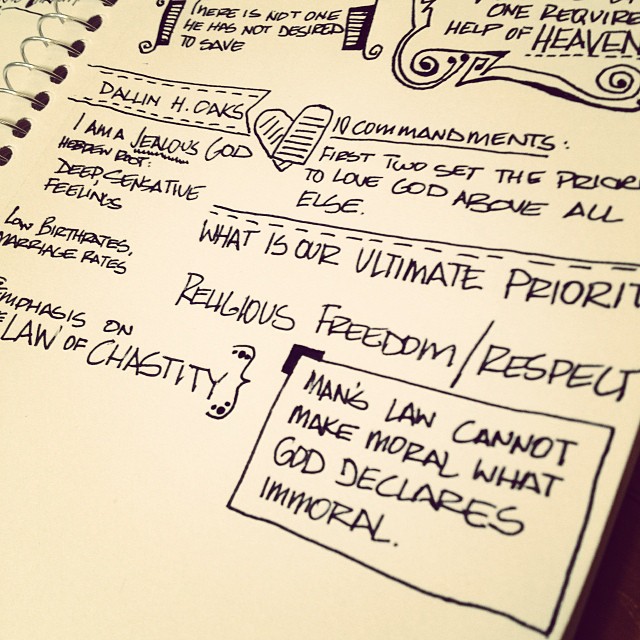 THERE IS NOT ONE
HE HAS NOT DESIRED
TO SAVE
ONE REQUIRE
HELP OF HEAVEN
DALLIN H. OAKS
I AM A JEALOUS GOD
HEBREW ROOT:
DEEP, SENSATIVE
FEELINGS
LOW BIRTHRATES,
MARRIAGE RATES
EMPHASIS ON
LAW OF CHASTITY
10 COMMANDMENTS:
FIRST TWO SET THE PRIORI
TO LOVE GOD ABOVE ALL
ELSE.
WHAT IS OUR ULTIMATE PRIORIT
RELIGIOUS FREEDOM/RESPECT
MAN'S LAW CANNOT
MAKE MORAL WHAT
GOD DECLARES
IMMORAL.